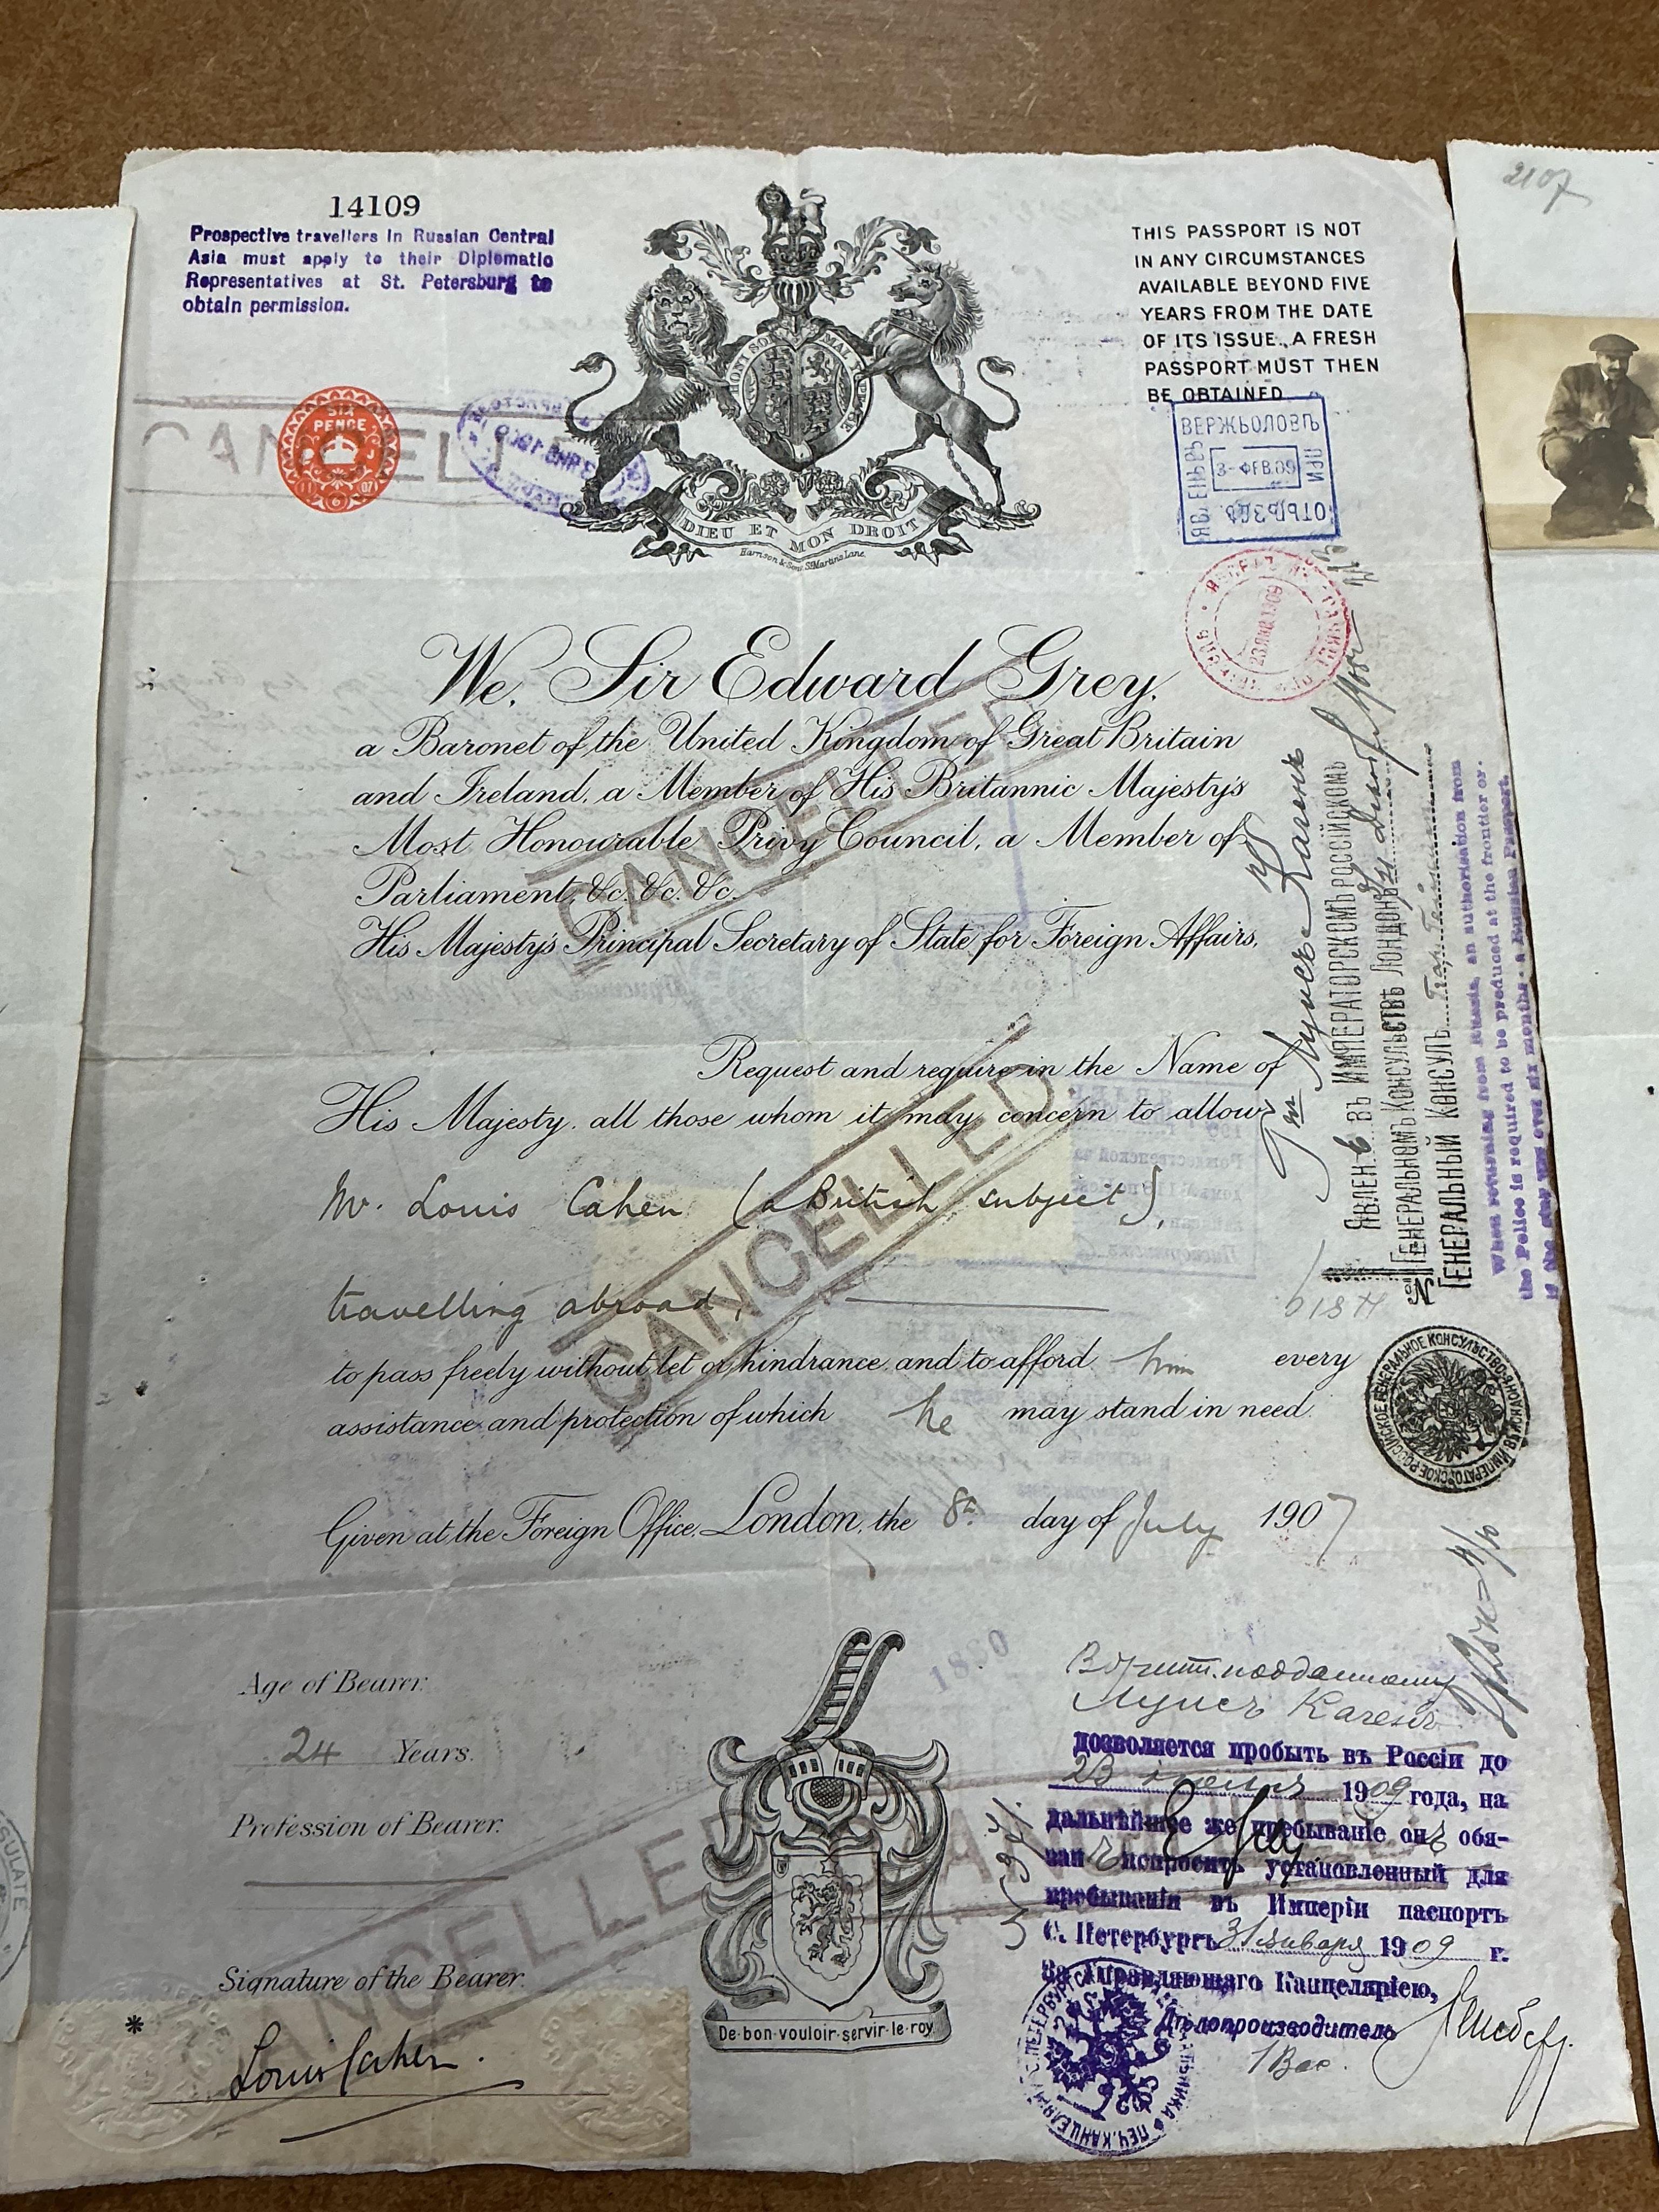 14109
Prospective travellers in Russian Central
Asia must apply to their Diplomatic
Representatives at St. Petersburg to
obtain permission.
THIS PASSPORT IS NOT
IN ANY CIRCUMSTANCES
AVAILABLE BEYOND FIVE
YEARS FROM THE DATE
OF ITS ISSUE. A FRESH
PASSPORT MUST THEN
BE OBTAINED
2107
SIX
PENCE
CANCELLED
HONI SOI MAL Y PENSE
DIEU ET MON DROIT
Harrison & Sons St Martins Lane
ВЕРЖБОЛОВЪ
ЯВЛЕНЪ ВЪ
3-ФЕВ.09
ПРИ
ОТЪѢЗДѢ
23 ЯНВ 1909
We, Sir Edward Grey,
a Baronet of the United Kingdom of Great Britain
and Ireland, a Member of His Britannic Majesty's
Most Honourable Privy Council, a Member of
Parliament, &c. &c. &c.
His Majesty's Principal Secretary of State for Foreign Affairs,
CANCELLED
Request and require in the Name of
His Majesty, all those whom it may concern to allow
Mr. Louis Cahen (a British subject),
travelling abroad,
CANCELLED
to pass freely without let or hindrance and to afford him every
assistance and protection of which he may stand in need.
Given at the Foreign Office, London, the 8th day of July 1907
Луисъ Кагенъ
ЯВЛЕН ВЪ ИМПЕРАТОРСКОМЪ РОССІЙСКОМЪ
ГЕНЕРАЛЬНОМЪ КОНСУЛЬСТВѢ ЛОНДОНѢ
ГЕНЕРАЛЬНЫЙ КОНСУЛЪ
№
When returning from Russia, an authorisation from
the Police is required to be produced at the frontier or
if the stay was over six months a Russian Passport.
ИМПЕРАТОРСКОЕ РОССІЙСКОЕ ГЕНЕРАЛЬНОЕ КОНСУЛЬСТВО ВЪ
Age of Bearer.
24 Years.
Profession of Bearer.
Signature of the Bearer.
*
Louis Cahen.
CANCELLED
De·bon·vouloir·servir·le·roy
Луисъ Кагенъ
дозволяется пробыть въ Россіи до
23 1909 года, на
дальнѣйшее же пребываніе онъ обя-
занъ испросить установленный для
пребыванія въ Имперіи паспортъ
С. Петербургъ 31 января 1909 г.
За Управляющаго Канцеляріею,
Дѣлопроизводитель
SULATE